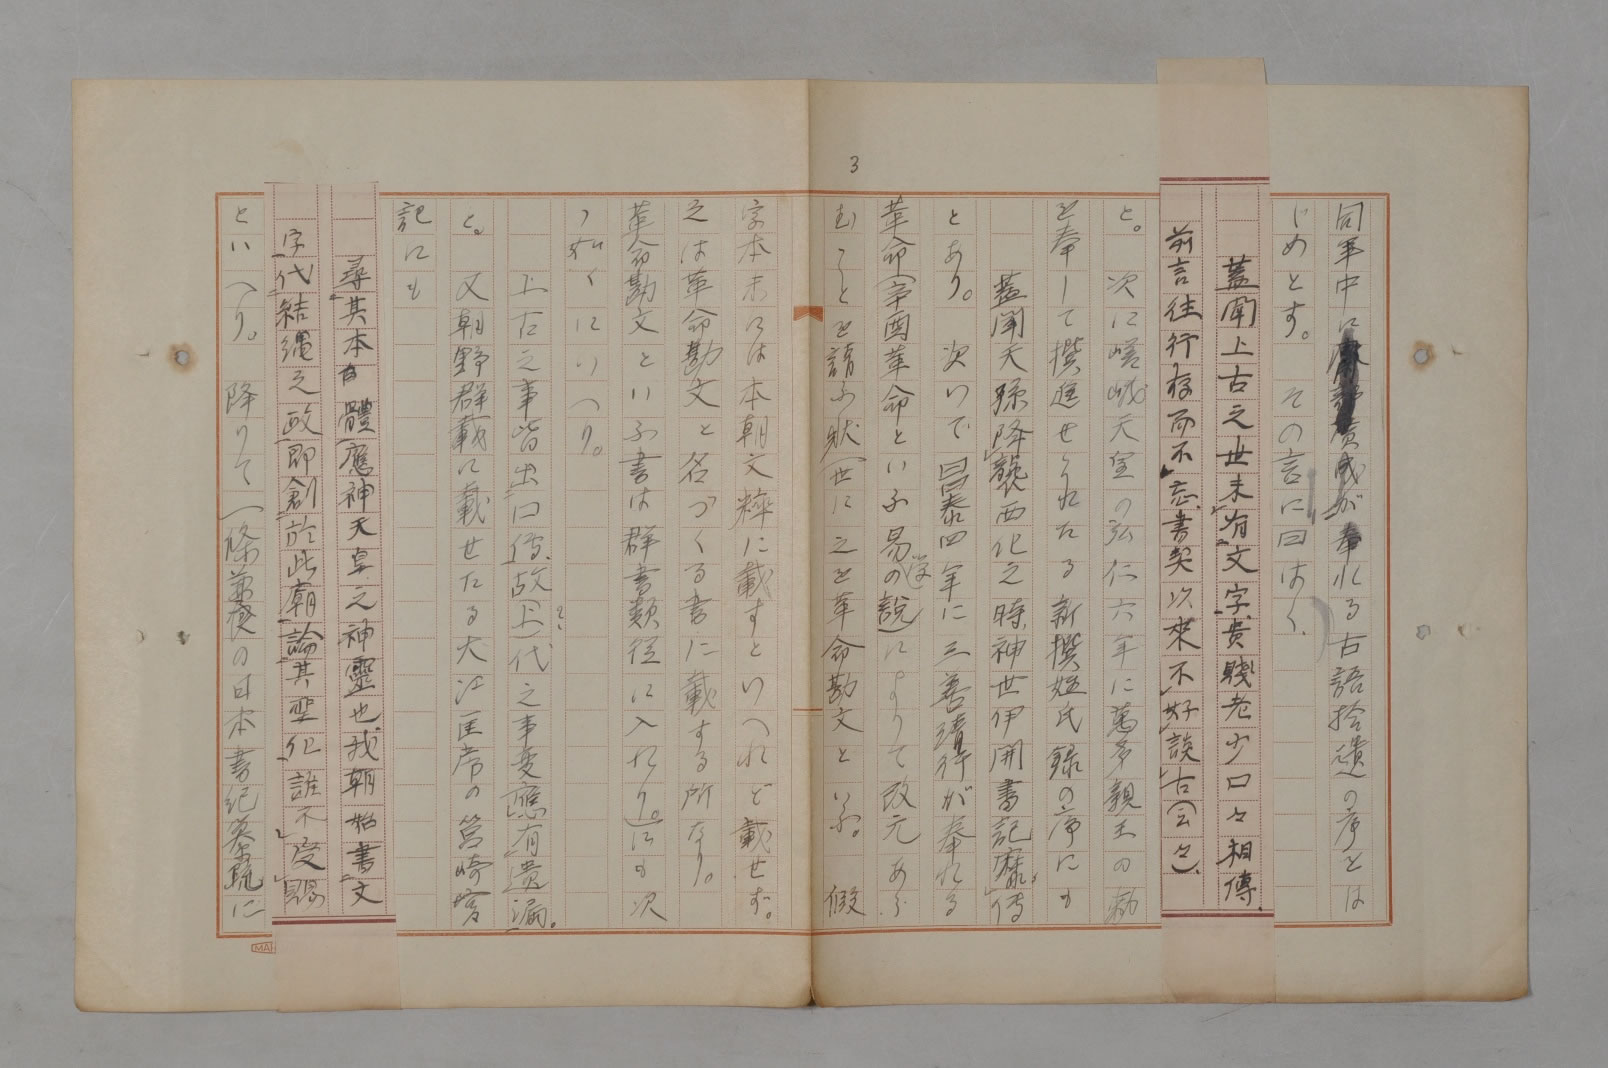 3
同年中に齋部廣成が奉れる古語拾遺の序をは
じめとす。その言に曰はく、
蓋聞上古之世未有文字貴賤老少口々相傳、
前言往行存而不忘、書契以來不好談古(云々)、
と。次に嵯峨天皇の弘仁六年に萬多親王の勅
を奉じて撰進せられたる新撰姓氏録の序にも
蓋聞天孫降襲西化之時、神世伊開書記靡傳
とあり。次いで昌泰四年に三善清行が奉れる
革命(辛酉革命といふ易学の説)によりて改元あら
むことを請ふ狀(世に之を革命勘文といふ。假
字本末には本朝文粹に載すといへれど載せず。
之は革命勘文と名づくる書に載する所なり。
革命勘文といふ書は群書類從に入れり。)にも次
の如くにいへり。
上古之事皆出口傳、故上代之事變應有遺漏。
と。又朝野群載に載せたる大江匡房の筥崎宮
記にも
尋其本自體應神天皇之神靈也、我朝始書文
字、代結繩之政、即創於此廟、論其聖化、誰不受賜
といへり。降りて一條兼良の日本書紀纂疏に